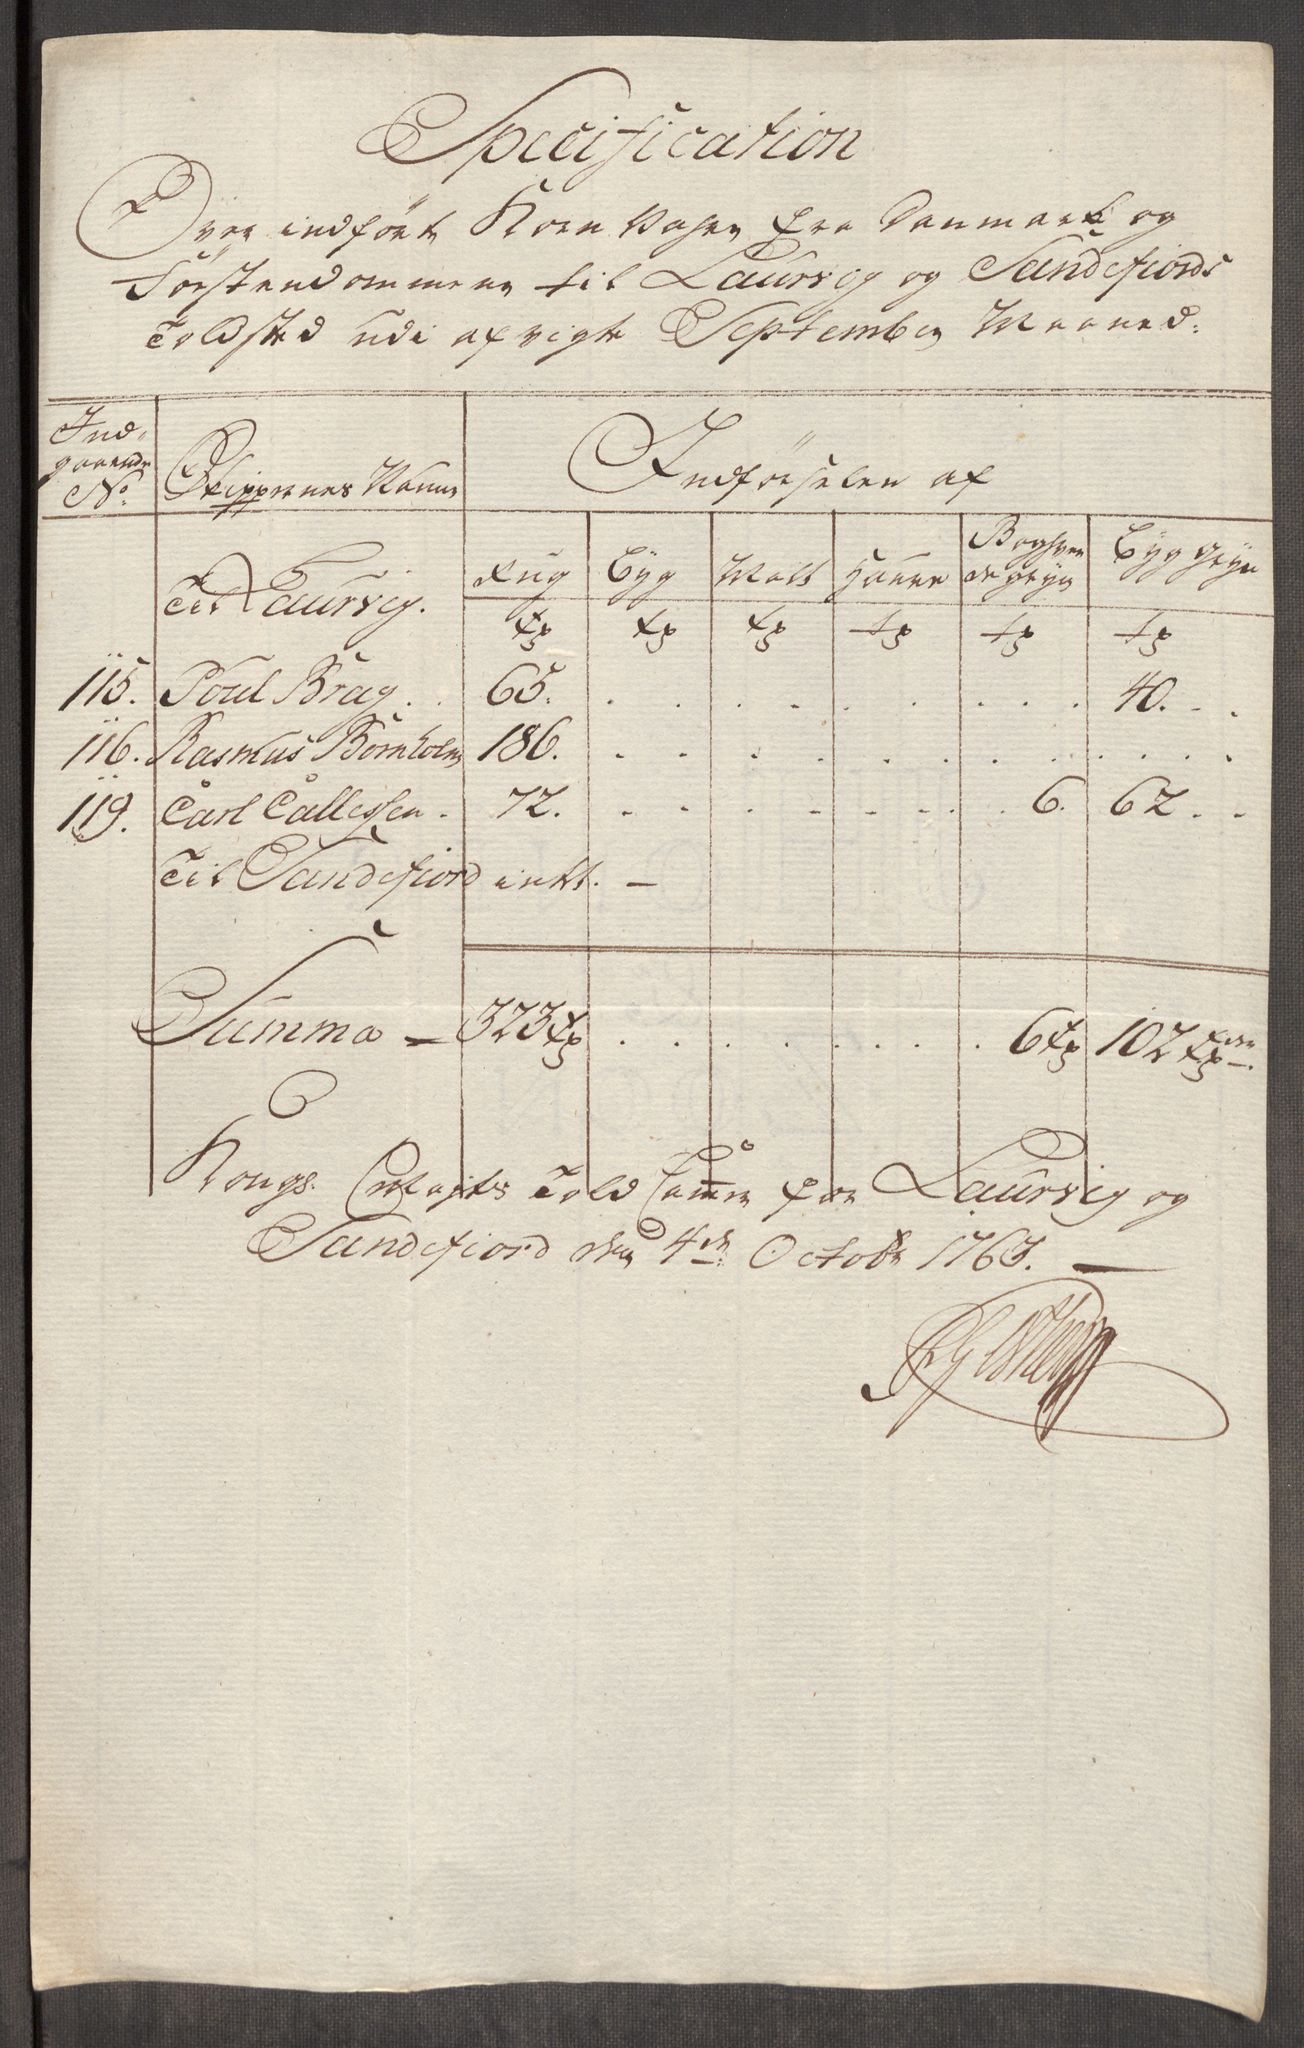 Specification
Over indført Korn Vahre fra Danmark og
Førstendommene til Laurvig og Sandefiords
Toldsted udi afvigte September Maaned:
Ind-
gaaende
No.
Skippernes Navne
Indførselen af
Til Laurvig.
Rug Byg Malt Hauer Boghve
degryn Byg Gryn
Tr Tr Tr Tr Tr Tr
115. Poul Brag . . 65. . . . . . . . . 40. . .
116. Rasmus Bornholm 186. . . . . . . . . . . .
119. Carl Callessen . 72. . . . . . . . 6. 62 . .
Til Sandefiord intet. —
Summa — 323 Tr . . . . . . . . 6 Tr 102 Tr
Kongl. Mayts Told Cammer for Laurvig og
Sandefiord den 4de Octobr 1763. —